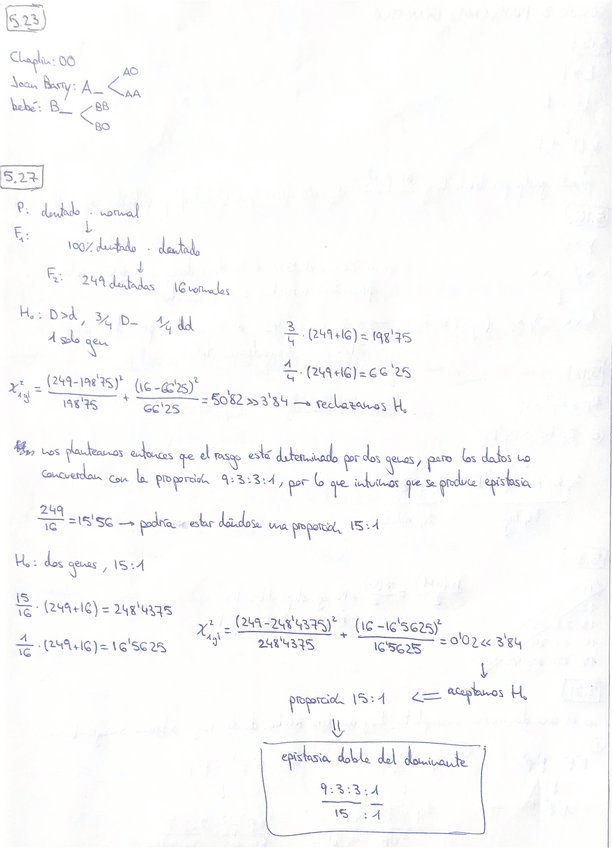 5.23
Chaplin: OO
Joan Barry: A_ < AO AA
bebé: B_ < BB BO
5.27
P: dentado · normal
↓
F₁: 100% dentado · dentado
↓
F₂: 249 dentadas 16 normales
H₀: D>d, 3/4 D_ 1/4 dd
1 solo gen
3/4 · (249+16) = 198'75
1/4 · (249+16) = 66'25
χ²₁gl = (249-198'75)²/198'75 + (16-66'25)²/66'25 = 50'82 >> 3'84 → rechazamos H₀
nos planteamos entonces que el rasgo está determinado por dos genes, pero los datos no
concuerdan con la proporción 9:3:3:1, por lo que intuimos que se produce epistasia
249/16 = 15'56 → podría estar dándose una proporción 15:1
H₀: dos genes, 15:1
15/16 · (249+16) = 248'4375
1/16 · (249+16) = 16'5625
χ²₁gl = (249-248'4375)²/248'4375 + (16-16'5625)²/16'5625 = 0'02 << 3'84
↓
proporción 15:1 <= aceptamos H₀
⇓
epistasia doble del dominante
9:3:3:1
15 : 1